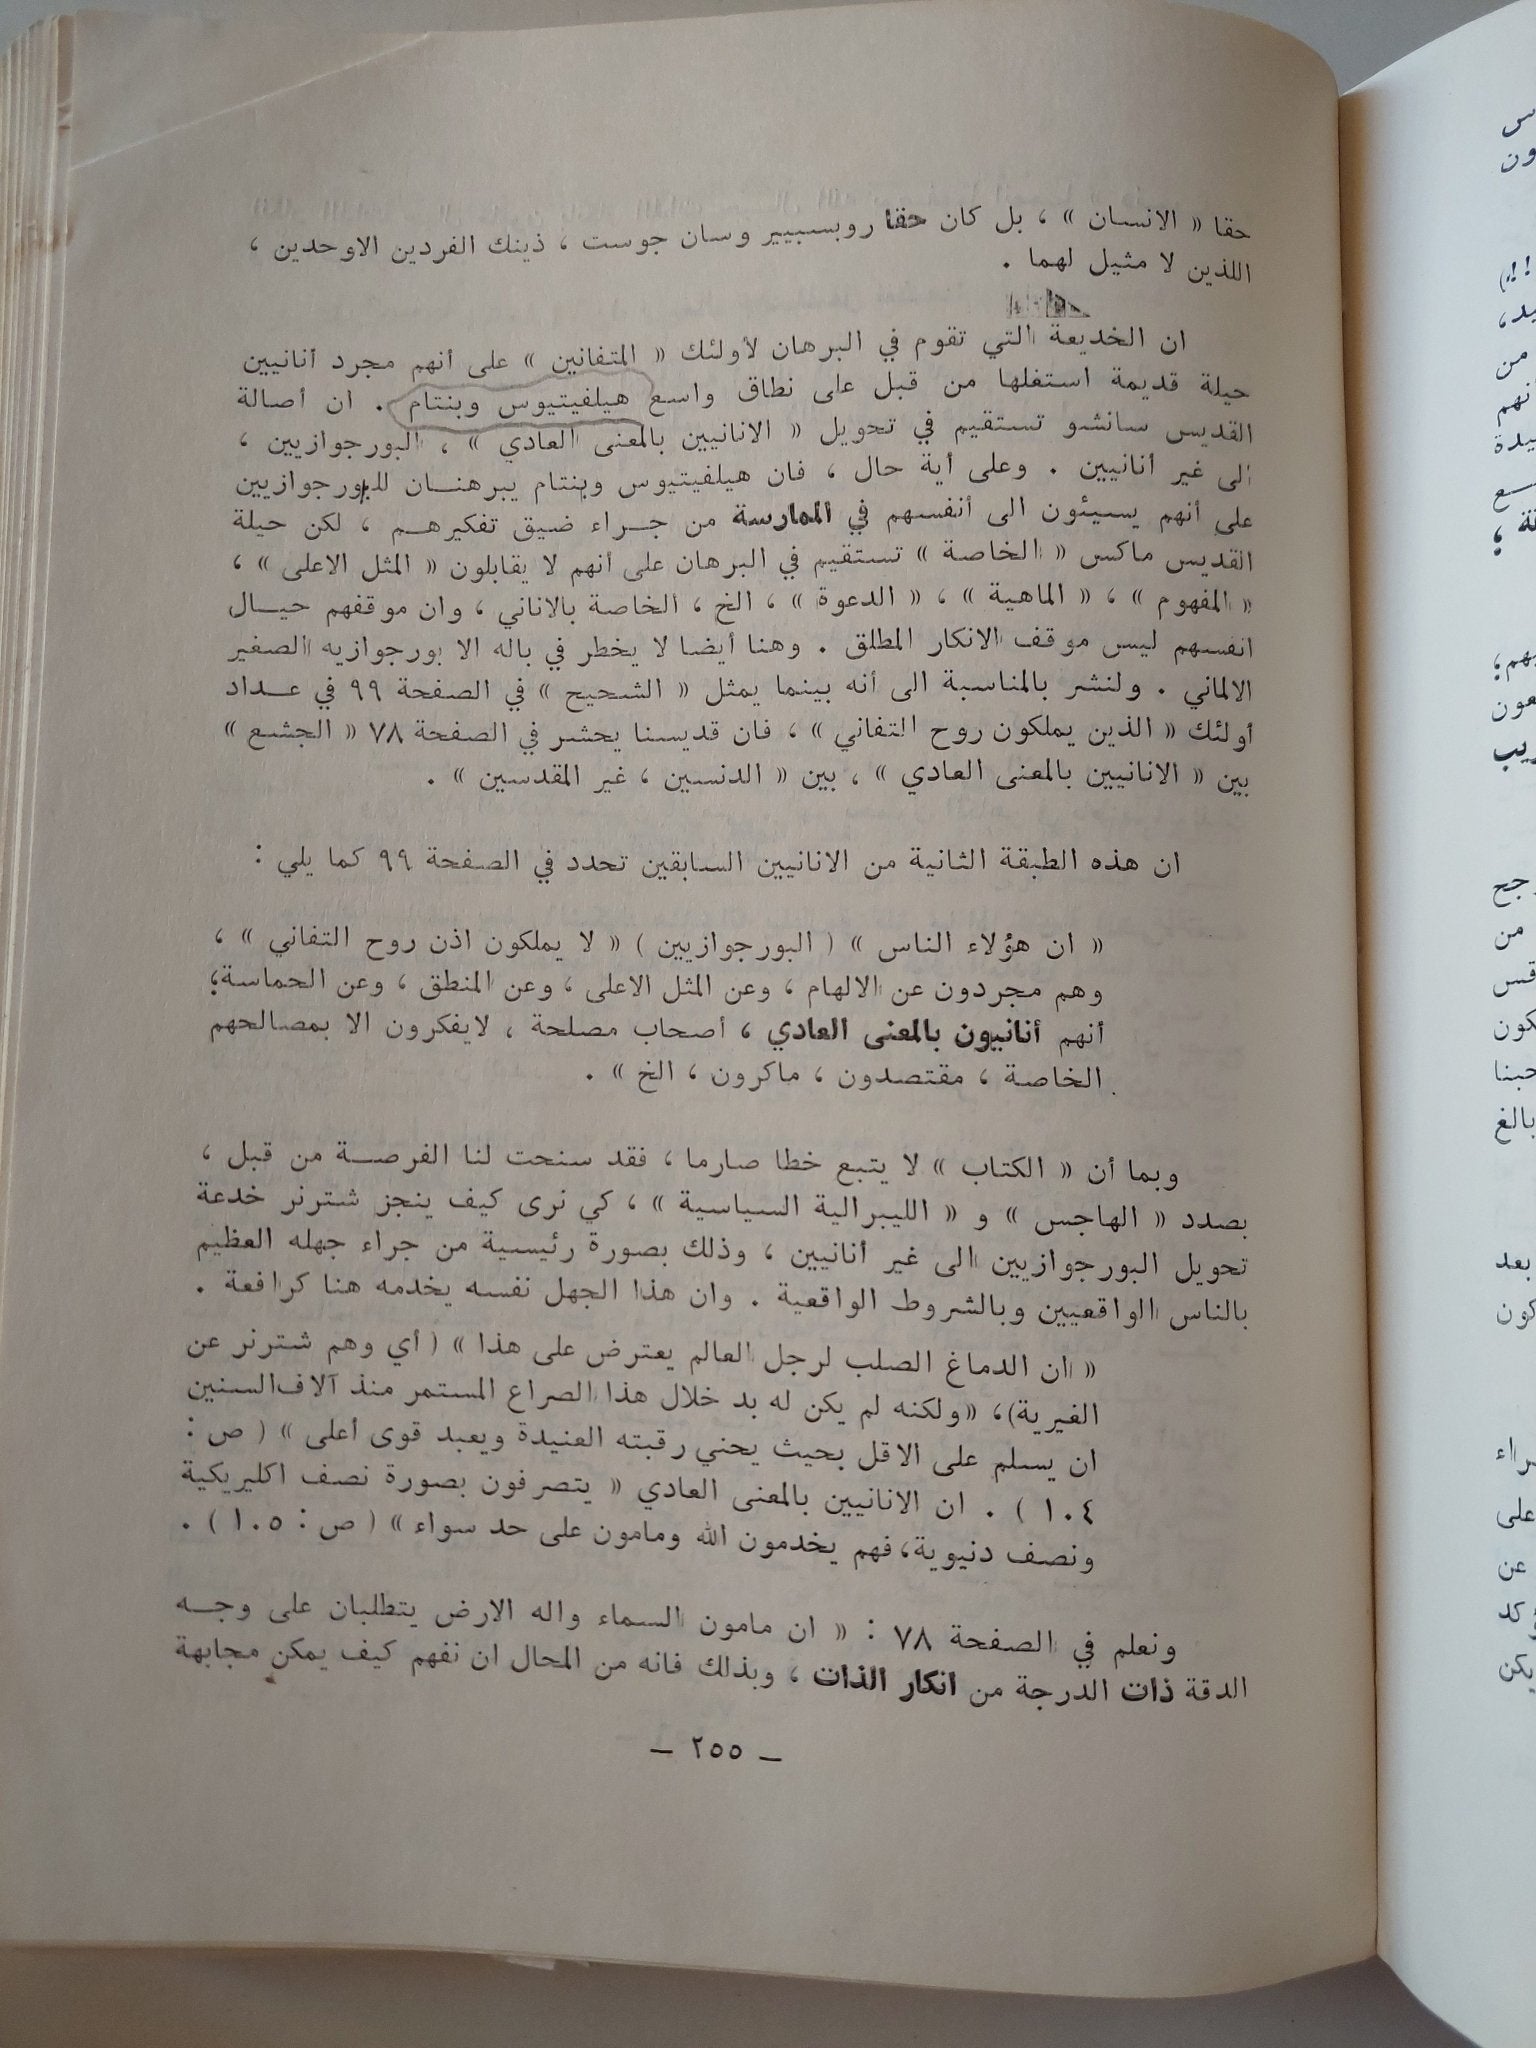 حقا « الانسان » ، بل كان حقا روبسبيير وسان جوست ، ذينك الفردين الاوحدين ،
اللذين لا مثيل لهما .
ان الخديعة التي تقوم في البرهان لأولئك « المتفانين » على أنهم مجرد أنانيين
حيلة قديمة استغلها من قبل على نطاق واسع هيلفيتيوس وبنتام . ان أصالة
القديس سانشو تستقيم في تحويل « الانانيين بالمعنى العادي » ، البورجوازيين ،
الى غير أنانيين . وعلى أية حال ، فان هيلفيتيوس وبنتام يبرهنان للبورجوازيين
على أنهم يسيئون الى أنفسهم في الممارسة من جراء ضيق تفكيرهم ، لكن حيلة
القديس ماكس « الخاصة » تستقيم في البرهان على أنهم لا يقابلون « المثل الاعلى » ،
« المفهوم » ، « الماهية » ، « الدعوة » ، الخ ، الخاصة بالاناني ، وان موقفهم حيال
انفسهم ليس موقف الانكار المطلق . وهنا أيضا لا يخطر في باله الا بورجوازيه الصغير
الالماني . ولنشر بالمناسبة الى أنه بينما يمثل « الشحيح » في الصفحة ٩٩ في عداد
أولئك « الذين يملكون روح التفاني » ، فان قديسنا يحشر في الصفحة ٧٨ « الجشع »
بين « الانانيين بالمعنى العادي » ، بين « الدنسين ، غير المقدسين » .
ان هذه الطبقة الثانية من الانانيين السابقين تحدد في الصفحة ٩٩ كما يلي :
« ان هؤلاء الناس » ( البورجوازيين ) « لا يملكون اذن روح التفاني » ،
وهم مجردون عن الالهام ، وعن المثل الاعلى ، وعن المنطق ، وعن الحماسة؛
أنهم أنانيون بالمعنى العادي ، أصحاب مصلحة ، لايفكرون الا بمصالحهم
الخاصة ، مقتصدون ، ماكرون ، الخ » .
وبما أن « الكتاب » لا يتبع خطا صارما ، فقد سنحت لنا الفرصة من قبل ،
بصدد « الهاجس » و « الليبرالية السياسية » ، كي نرى كيف ينجز شترنر خدعة
تحويل البورجوازيين الى غير أنانيين ، وذلك بصورة رئيسية من جراء جهله العظيم
بالناس الواقعيين وبالشروط الواقعية . وان هذا الجهل نفسه يخدمه هنا كرافعة .
« ان الدماغ الصلب لرجل العالم يعترض على هذا » ( أي وهم شترنر عن
الغيرية)، «ولكنه لم يكن له بد خلال هذا الصراع المستمر منذ آلاف السنين
ان يسلم على الاقل بحيث يحني رقبته العنيدة ويعبد قوى أعلى » ( ص :
١٠٤ ) . ان الانانيين بالمعنى العادي « يتصرفون بصورة نصف اكليريكية
ونصف دنيوية، فهم يخدمون الله ومامون على حد سواء » ( ص : ١٠٥ ) .
ونعلم في الصفحة ٧٨ : « ان مامون السماء واله الارض يتطلبان على وجه
الدقة ذات الدرجة من انكار الذات ، وبذلك فانه من المحال ان نفهم كيف يمكن مجابهة
– ٢٥٥ –